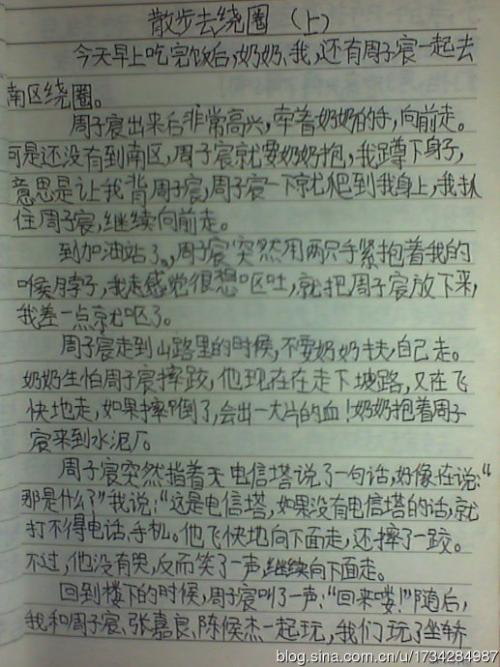 散步去绕圈（上）
今天早上吃完饭后,奶奶、我,还有周子宸一起去
南区绕圈。
周子宸出来后非常高兴,牵着奶奶的手,向前走。
可是还没有到南区,周子宸就要奶奶抱,我蹲下身子,
意思是让我背周子宸,周子宸一下就爬到我身上,我扒
住周子宸,继续向前走。
到加油站了,周子宸突然用两只手紧抱着我的
喉脖子,我走感觉很想呕吐,就把周子宸放下来,
我差一点就呕了。
周子宸走到山路里的时候,不要奶奶扶,自己走。
奶奶生怕周子宸摔跤,他现在在走下坡路,又在飞
快地走,如果摔倒了,会出一大片的血!奶奶抱着周子
宸来到水泥厂。
周子宸突然指着无电信塔说了一句话,好像在说:“
那是什么?”我说:“这是电信塔,如果没有电信塔的话,就
打不得电话、手机。他飞快地向下面走,还摔了一跤。
不过,他没有哭,反而笑了一声,继续向下面走。
回到楼下的时候,周子宸叫了一声:“回来喽!”随后,
我和周子宸、张嘉良、陈俟杰一起玩,我们玩了坐轿
blog.sina.com.cn/u/1734284987